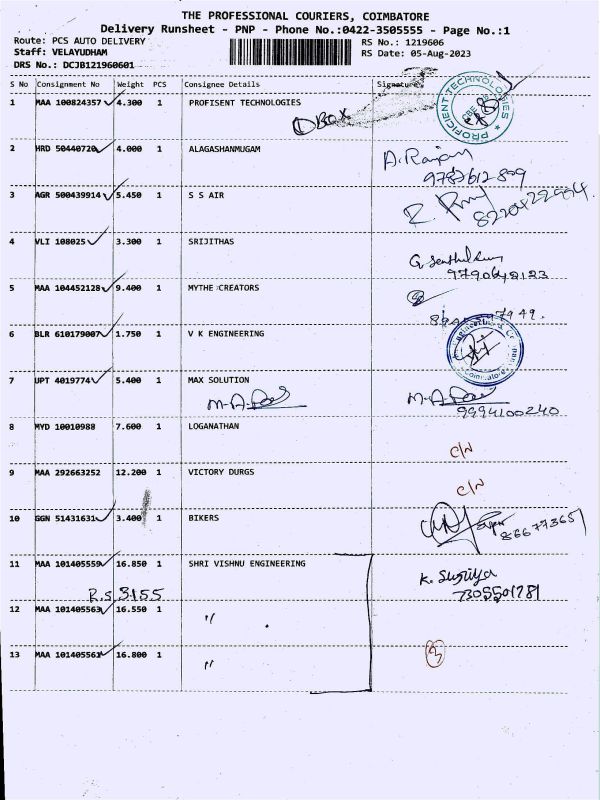 THE PROFESSIONAL COURIERS, COIMBATORE
Delivery Runsheet - PNP - Phone No.:0422-3505555 - Page No.:1
Route: PCS AUTO DELIVERY
RS No.: 1219606
Staff: VELAYUDHAM
RS Date: 05-Aug-2023
DRS No.: DCJB121960601
S No Consignment No Weight PCS Consignee Details Signature
1 MAA 100824357 4.300 1 PROFISENT TECHNOLOGIES
① BOX
PROFICIENT TECHNOLOGIES
2 HRD 50440720 4.000 1 ALAGASHANMUGAM
3 AGR 500439914 5.450 1 S S AIR
4 VLI 108025 3.300 1 SRIJITHAS
9790648123
5 MAA 104452128 9.400 1 MYTHE CREATORS
6 BLR 610179007 1.750 1 V K ENGINEERING
Coimbatore
7 UPT 4019774 5.400 1 MAX SOLUTION
9994100240
8 MYD 10010988 7.600 1 LOGANATHAN
C/N
9 MAA 292663252 12.200 1 VICTORY DURGS
C/N
10 GGN 51431631 3.400 1 BIKERS
11 MAA 101405559 16.850 1 SHRI VISHNU ENGINEERING
K. Suriya
7305501781
R.S 3155
12 MAA 101405563 16.550 1 〃
13 MAA 101405561 16.800 1 〃
3